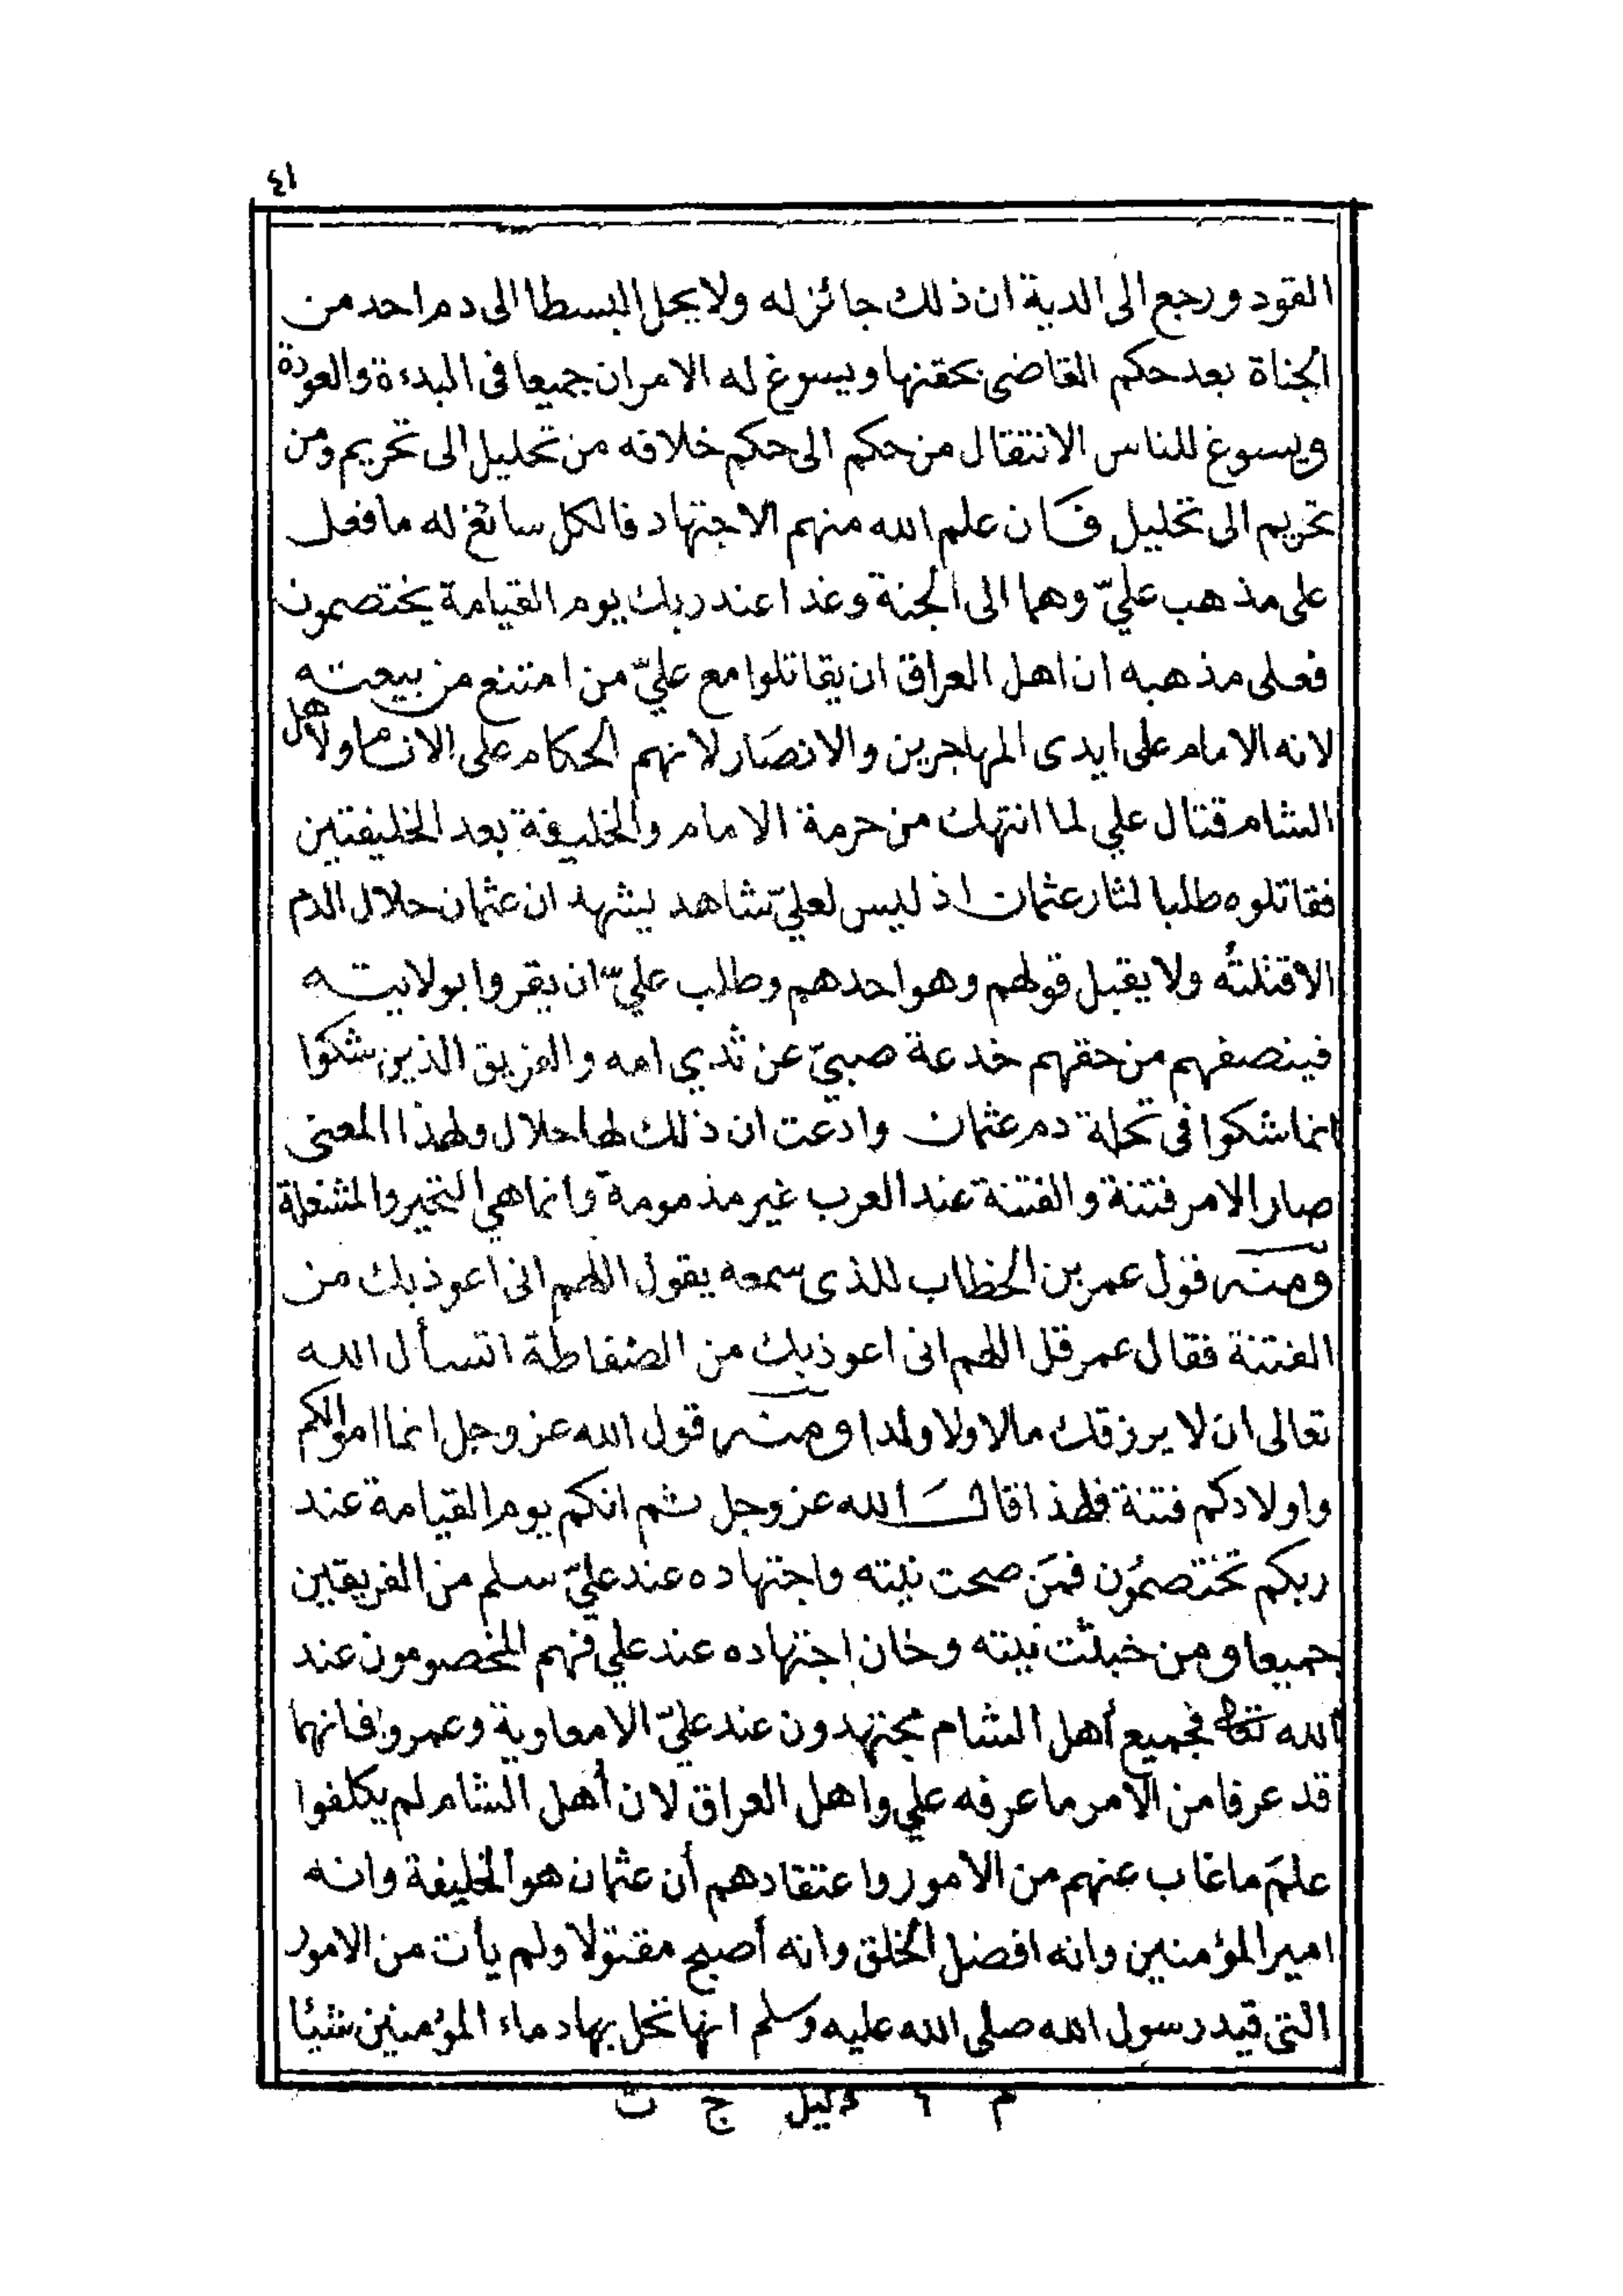 ٤١
القود ورجع الى الدية ان ذلك جائز له ولا يحل البسطا الى دم احد من
الجناة بعد حكم القاضى بحقنها ويسوغ له الامران جميعا فى البدءة والعودة
ويسوغ للناس الانتقال من حكم الى حكم خلافه من تحليل الى تحريم ومن
تحريم الى تحليل فان علم الله منهم الاجتهاد فالكل سائغ له ما فعل
على مذهب عليّ وهما الى الجنة وغذا عند ربك يوم القيامة يختصمون
فعلى مذهبه ان اهل العراق ان يقاتلوا مع عليّ من امتنع من بيعته
لانه الامام على ايدى المهاجرين والانصَار لانهم الحكام على الانام ولاهل
الشام قتال علي لما انتهك من حرمة الامام والخليفة بعد الخليفتين
فقاتلوه طلبا لثار عثمان اذ ليس لعليّ شاهد يشهد ان عثمان حلال الدم
الا قتلتُه ولا يقبل قولهم وهو احدهم وطلب عليّ ان يقروا بولايته
فينصفهم من حقهم خدعة صبيّ عن ثدي امه والفريق الذين شكوا
انما شكوا فى تحلة دم عثمان وادعت ان ذلك لها حلال ولهذا المعنى
صار الامر فتنة والفتنة عند العرب غير مذمومة وانما هي التخير والمشغلة
ومنه قول عمر بن الخطاب للذى سمعه يقول اللهم انى اعوذ بك من
الفتنة فقال عمر قل اللهم انى اعوذ بك من الضفاطة اتسأل الله
تعالى ان لا يرزقك مالا ولا ولدا ومنه قول الله عز وجل انما اموالكم
واولادكم فتنة فلهذا قال الله عز وجل ثم انكم يوم القيامة عند
ربكم تختصمُون فمَن صحت نيته واجتهاده عند عليّ سلم من الفريقين
جميعا ومن خبثت نيته وخان اجتهاده عند علي فهم المخصومون عند
الله تعالى فجميع أهل الشام مجتهدون عند عليّ الا معاوية وعمروا فانهما
قد عرفا من الامر ما عرفه علي واهل العراق لان أهل الشام لم يكلفوا
علمَ ما غاب عنهم من الامور واعتقادهم أن عثمان هو الخليفة وانه
امير المؤمنين وانه افضل الخلق وانه أصبح مقتولا ولم يأت من الامور
التى قيد رسول الله صلى الله عليه وسلم انها تحل بها دماء المؤمنين شيئا
م ٦ دليل ج ث